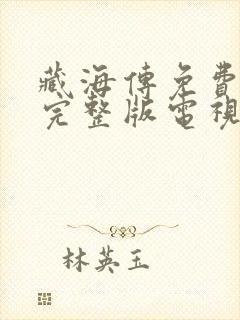 藏海傳免費
完整版電視
林英玉